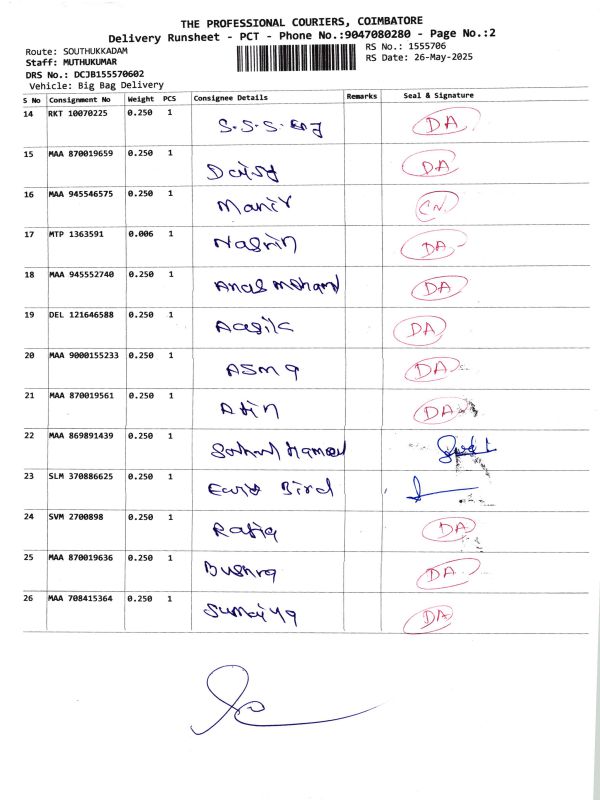 THE PROFESSIONAL COURIERS, COIMBATORE
Delivery Runsheet - PCT - Phone No.:9047080280 - Page No.:2
Route: SOUTHUKKADAM
RS No.: 1555706
Staff: MUTHUKUMAR
RS Date: 26-May-2025
DRS No.: DCJB155570602
Vehicle: Big Bag Delivery
S No Consignment No Weight PCS Consignee Details Remarks Seal & Signature
14 RKT 10070225 0.250 1 S.S.S. DA
15 MAA 870019659 0.250 1 Daisy DA
16 MAA 945546575 0.250 1 Manir CN
17 MTP 1363591 0.006 1 Nasrin DA
18 MAA 945552740 0.250 1 Anas Mohamd DA
19 DEL 121646588 0.250 1 Aasila DA
20 MAA 9000155233 0.250 1 Asma DA
21 MAA 870019561 0.250 1 DA
22 MAA 869891439 0.250 1 Hameed
23 SLM 370886625 0.250 1 Bird
24 SVM 2700898 0.250 1 Rafiq DA
25 MAA 870019636 0.250 1 Bushra DA
26 MAA 708415364 0.250 1 Sumaiya DA